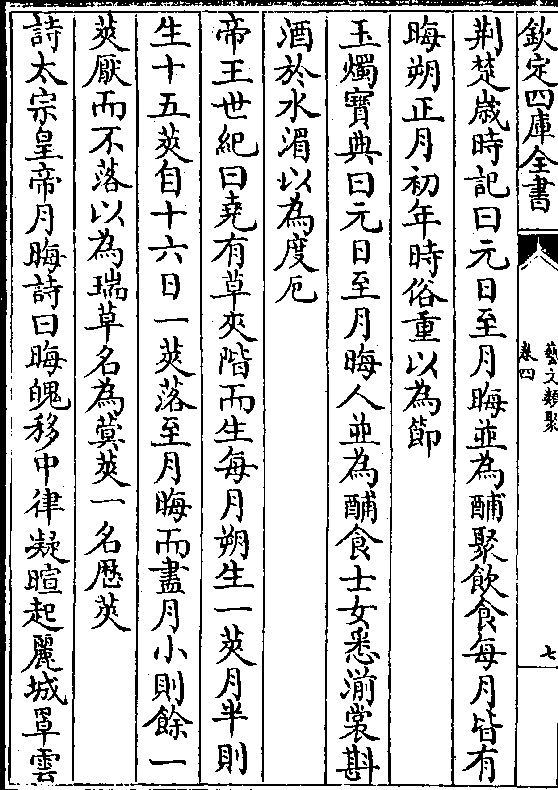 欽定四庫全書
藝文類聚
卷四
七
荆楚嵗時記曰元日至月晦並為酺聚飲食每月皆有
晦朔正月初年時俗重以為節
玉燭寶典曰元日至月晦人並為酺食士女悉湔裳㪺
酒於水湄以為度厄
帝王世紀曰堯有草夾階而生每月朔生一莢月半則
生十五莢自十六日一莢落至月晦而盡月小則餘一
莢厭而不落以為瑞草名為蓂莢一名厯莢
詩太宗皇帝月晦詩曰晦魄移中律凝暄起麗城罩雲